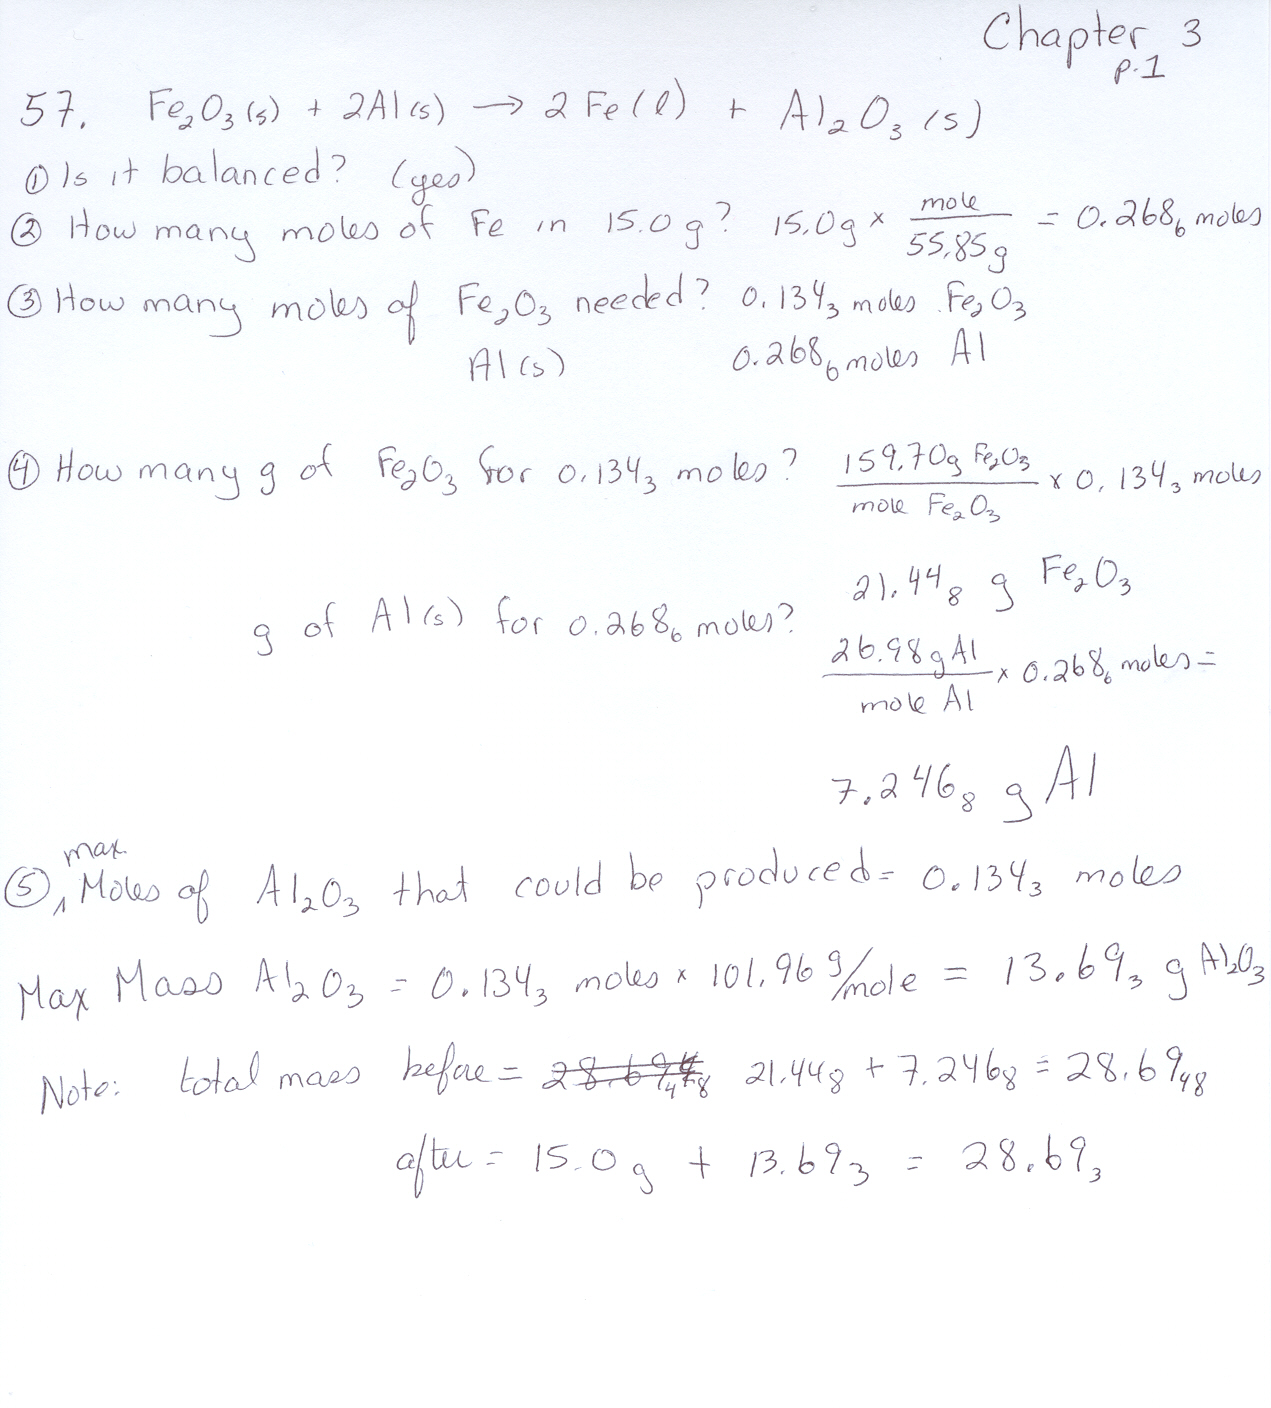 Chapter 3
p.1
57. Fe₂O₃(s) + 2Al(s) → 2Fe(l) + Al₂O₃(s)
① Is it balanced? (yes)
② How many moles of Fe in 15.0g? 15.0g × mole/55.85g = 0.268₆ moles
③ How many moles of Fe₂O₃ needed? 0.134₃ moles Fe₂O₃
Al(s) 0.268₆ moles Al
④ How many g of Fe₂O₃ for 0.134₃ moles? 159.70g Fe₂O₃/mole Fe₂O₃ × 0.134₃ moles
21.44₈ g Fe₂O₃
g of Al(s) for 0.268₆ moles? 26.98g Al/mole Al × 0.268₆ moles =
7.246₈ g Al
⑤ max Moles of Al₂O₃ that could be produced = 0.134₃ moles
Max Mass Al₂O₃ = 0.134₃ moles × 101.96 g/mole = 13.69₃ g Al₂O₃
Note: total mass before = 21.44₈ + 7.246₈ = 28.69₄₈
after = 15.0g + 13.69₃ = 28.69₃